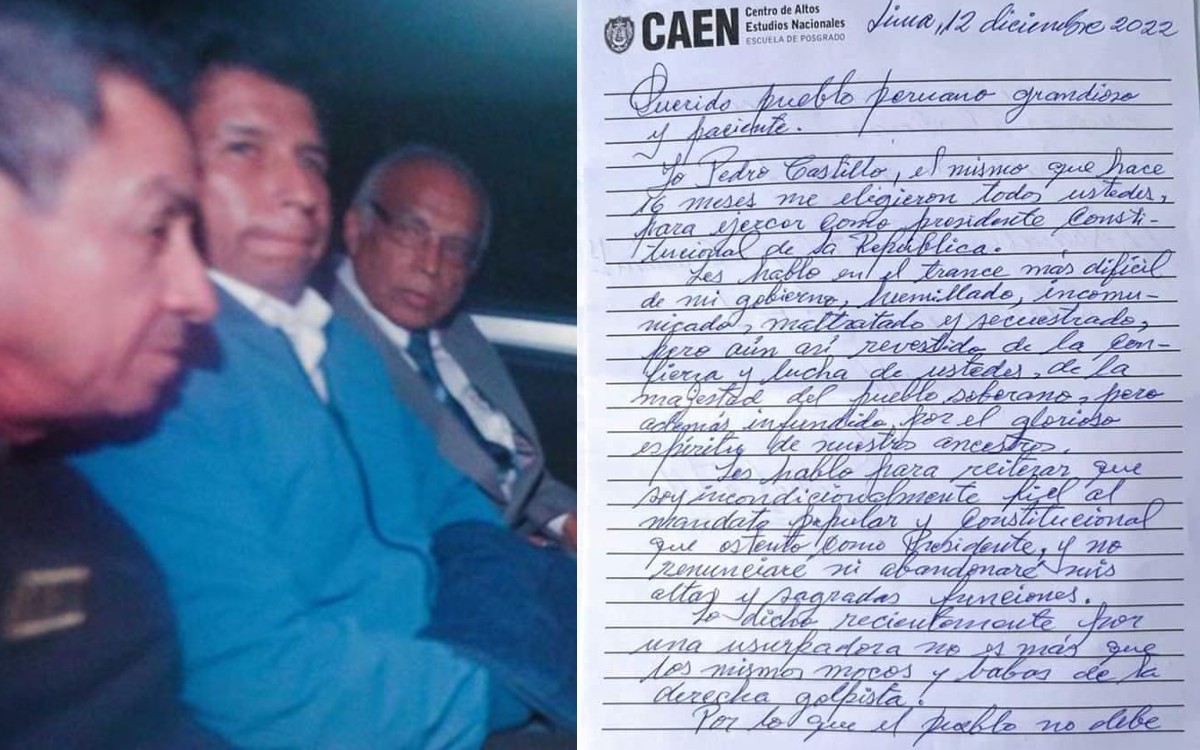 CAEN
Centro de Altos
Estudios Nacionales
ESCUELA DE POSGRADO
Lima, 12 diciembre 2022
Querido pueblo peruano grandioso
y paciente.
Yo Pedro Castillo, el mismo que hace
16 meses me eligieron todos ustedes,
para ejercer como presidente Consti-
tucional de la República.
Les hablo en el trance más difícil
de mi gobierno, humillado, incomu-
nicado, maltratado y secuestrado,
pero aún así revestido de la con-
fierza y lucha de ustedes, de la
majestad del pueblo soberano, pero
además infundido por el glorioso
espíritu de nuestros ancestros.
Les hablo para reiterar que
soy incondicionalmente fiel al
mandato popular y Constitucional
que ostento como Presidente, y no
renunciaré ni abandonaré mis
altas y sagradas funciones.
Lo dicho recientemente por
una usurpadora no es más que
los mismos mocos y babas de la
derecha golpista.
Por lo que el pueblo no debe